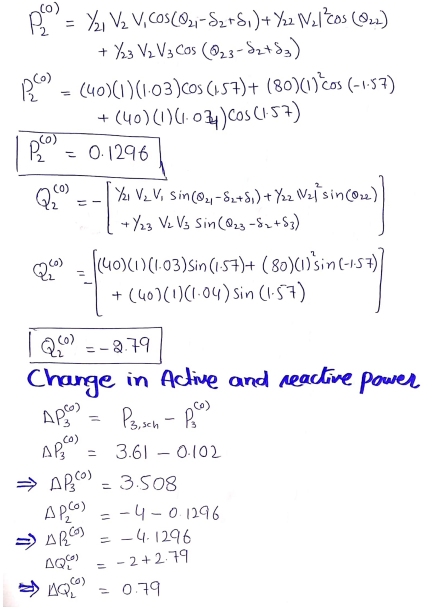 P₂⁽⁰⁾ = Y₂₁ V₂ V₁ cos(θ₂₁-δ₂+δ₁)+ Y₂₂ |V₂|² cos (θ₂₂)
+ Y₂₃ V₂ V₃ cos (θ₂₃-δ₂+δ₃)
P₂⁽⁰⁾ = (40)(1)(1.03)cos(1.57)+ (80)(1)² cos (-1.57)
+ (40)(1)(1.04)cos(1.57)
P₂⁽⁰⁾ = 0.1296
Q₂⁽⁰⁾ = - [Y₂₁ V₂ V₁ sin(θ₂₁-δ₂+δ₁)+ Y₂₂ |V₂|² sin(θ₂₂)
+ Y₂₃ V₂ V₃ sin(θ₂₃-δ₂+δ₃)]
Q₂⁽⁰⁾ = -[(40)(1)(1.03)sin(1.57)+ (80)(1)² sin(-1.57)
+ (40)(1)(1.04) sin (1.57)]
Q₂⁽⁰⁾ = -2.79
Change in Active and reactive power
ΔP₃⁽⁰⁾ = P₃,sch - P₃⁽⁰⁾
ΔP₃⁽⁰⁾ = 3.61 - 0.102
⇒ ΔP₃⁽⁰⁾ = 3.508
ΔP₂⁽⁰⁾ = -4 - 0.1296
⇒ ΔP₂⁽⁰⁾ = -4.1296
ΔQ₂⁽⁰⁾ = -2+2.79
⇒ ΔQ₂⁽⁰⁾ = 0.79